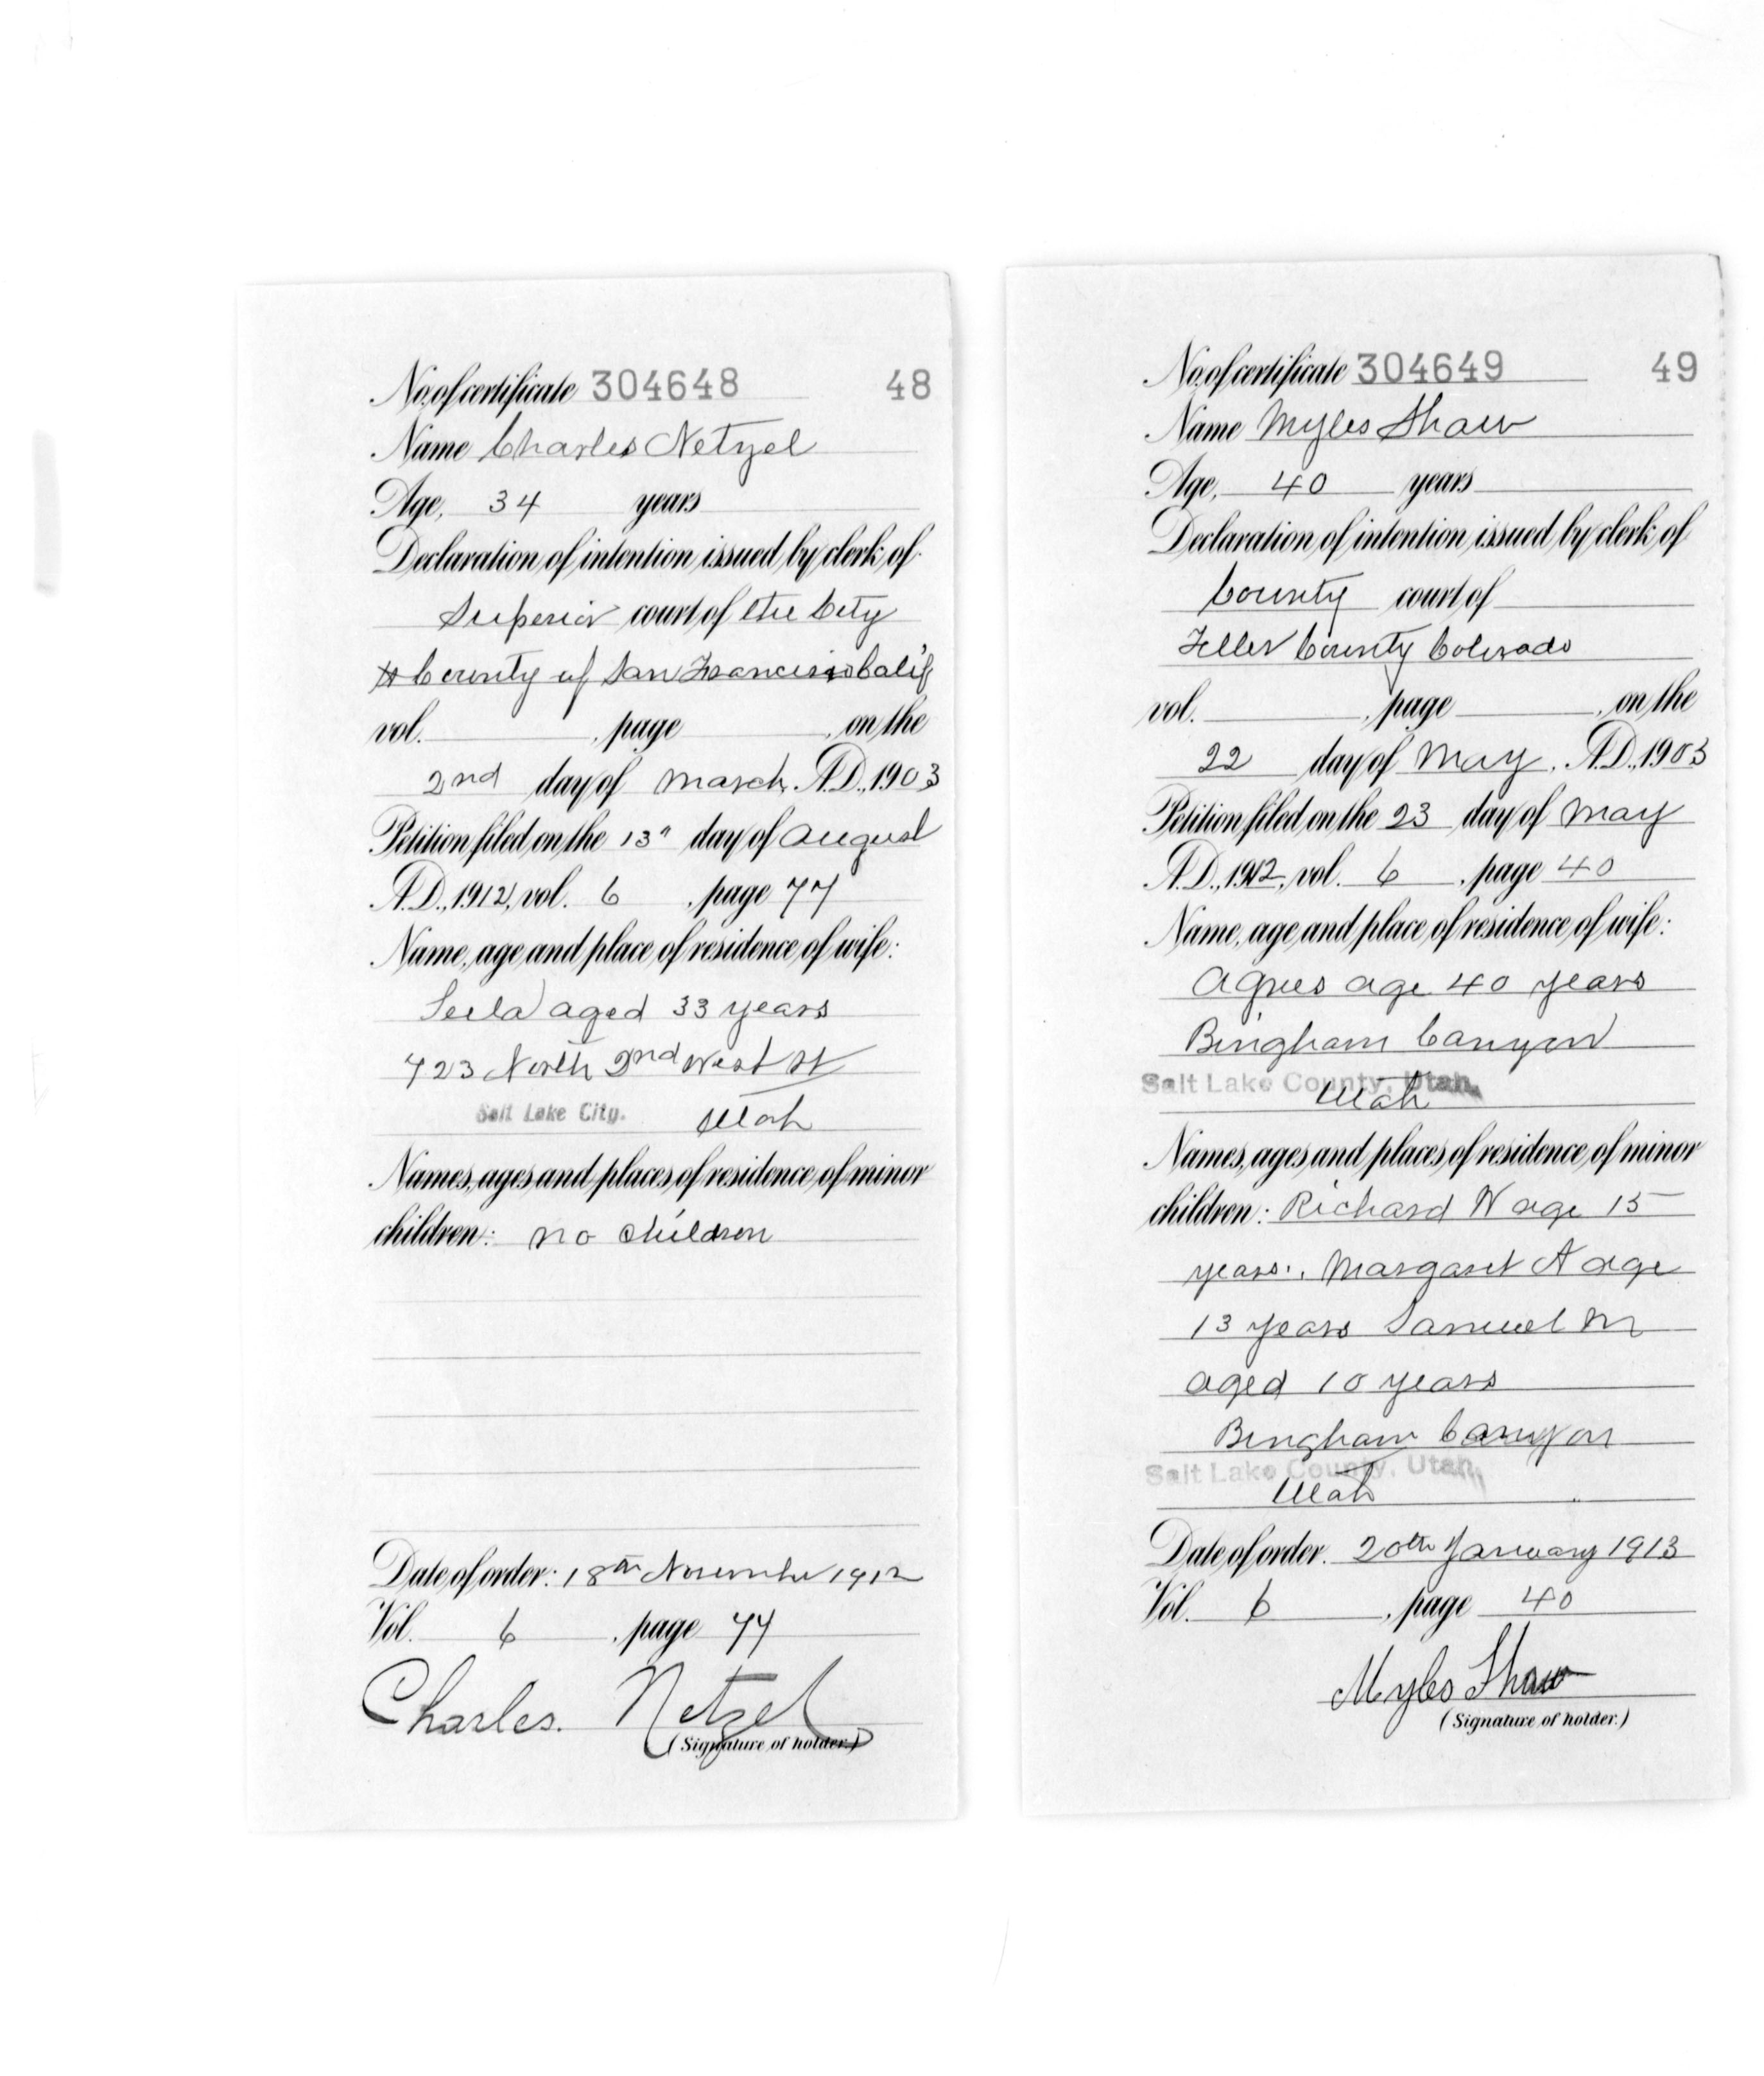 No. of certificate 304648 48
Name Charles Netzel
Age, 34 years
Declaration of intention issued by clerk of
Superior court of the City
& County of San Francisco Calif
vol. , page , on the
2nd day of March, A.D., 1903
Petition filed on the 13" day of August
A.D., 1912, vol. 6 , page 77
Name, age and place of residence of wife:
aged 33 years
723 North 2nd West St
Salt Lake City. Utah
Names, ages and places of residence of minor
children: no children
Date of order: 18th November 1912
Vol. 6 , page 77
Charles. Netzel
(Signature of holder.)
No. of certificate 304649 49
Name Myles Shaw
Age, 40 years
Declaration of intention issued by clerk of
County court of
Teller County Colorado
vol. , page , on the
22 day of May, A.D., 1903
Petition filed on the 23 day of May
A.D., 1912, vol. 6 , page 40
Name, age and place of residence of wife:
Agnes age 40 years
Bingham Canyon
Salt Lake County, Utah.
Utah
Names, ages and places of residence of minor
children: Richard W age 15
years., Margaret A age
13 years Samuel M
aged 10 years
Bingham Canyon
Salt Lake County, Utah.
Utah
Date of order. 20th January 1913
Vol. 6 , page 40
Myles Shaw
(Signature of holder.)